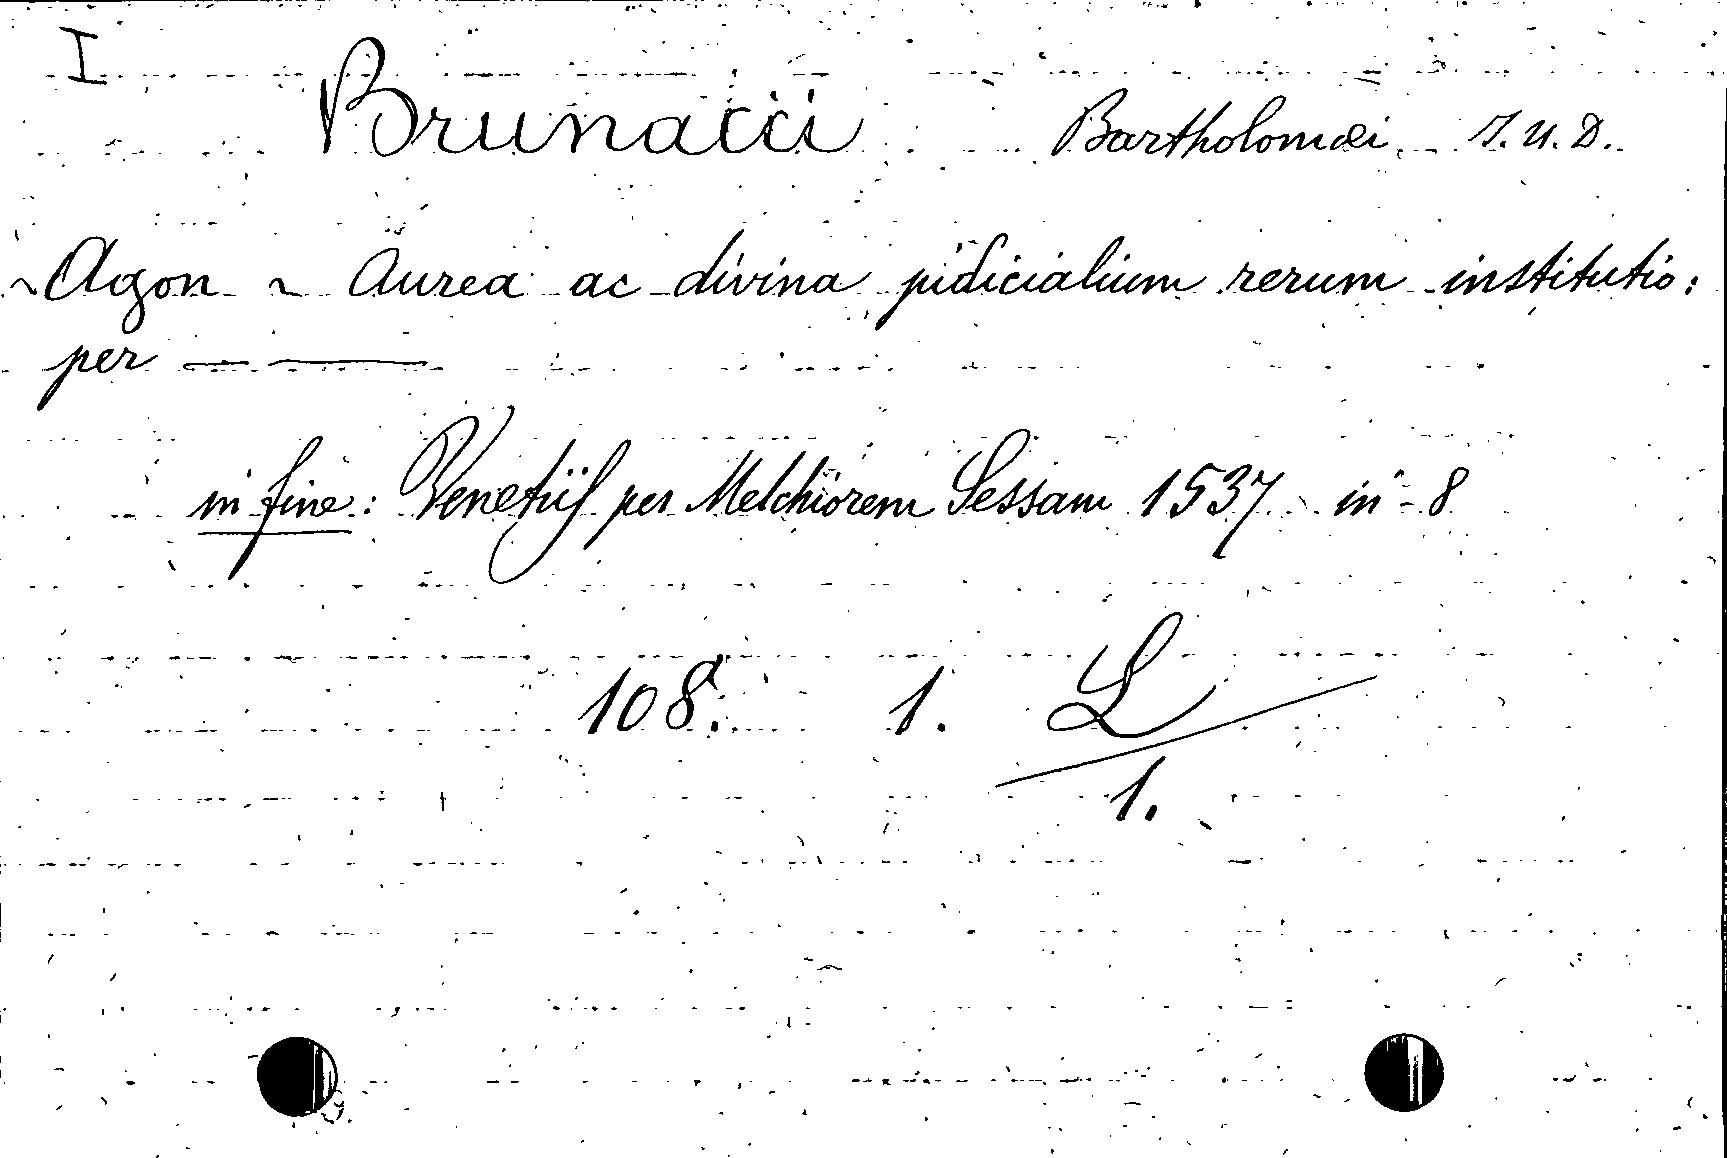 I
Brunacci Bartholomæi J. U. D.
~ Agon ~ Aurea ac divina judicialium rerum institutio:
per — ——
in fine: Venetiis per Melchiorem Sessam 1537 in - 8
108. 1. L
1.